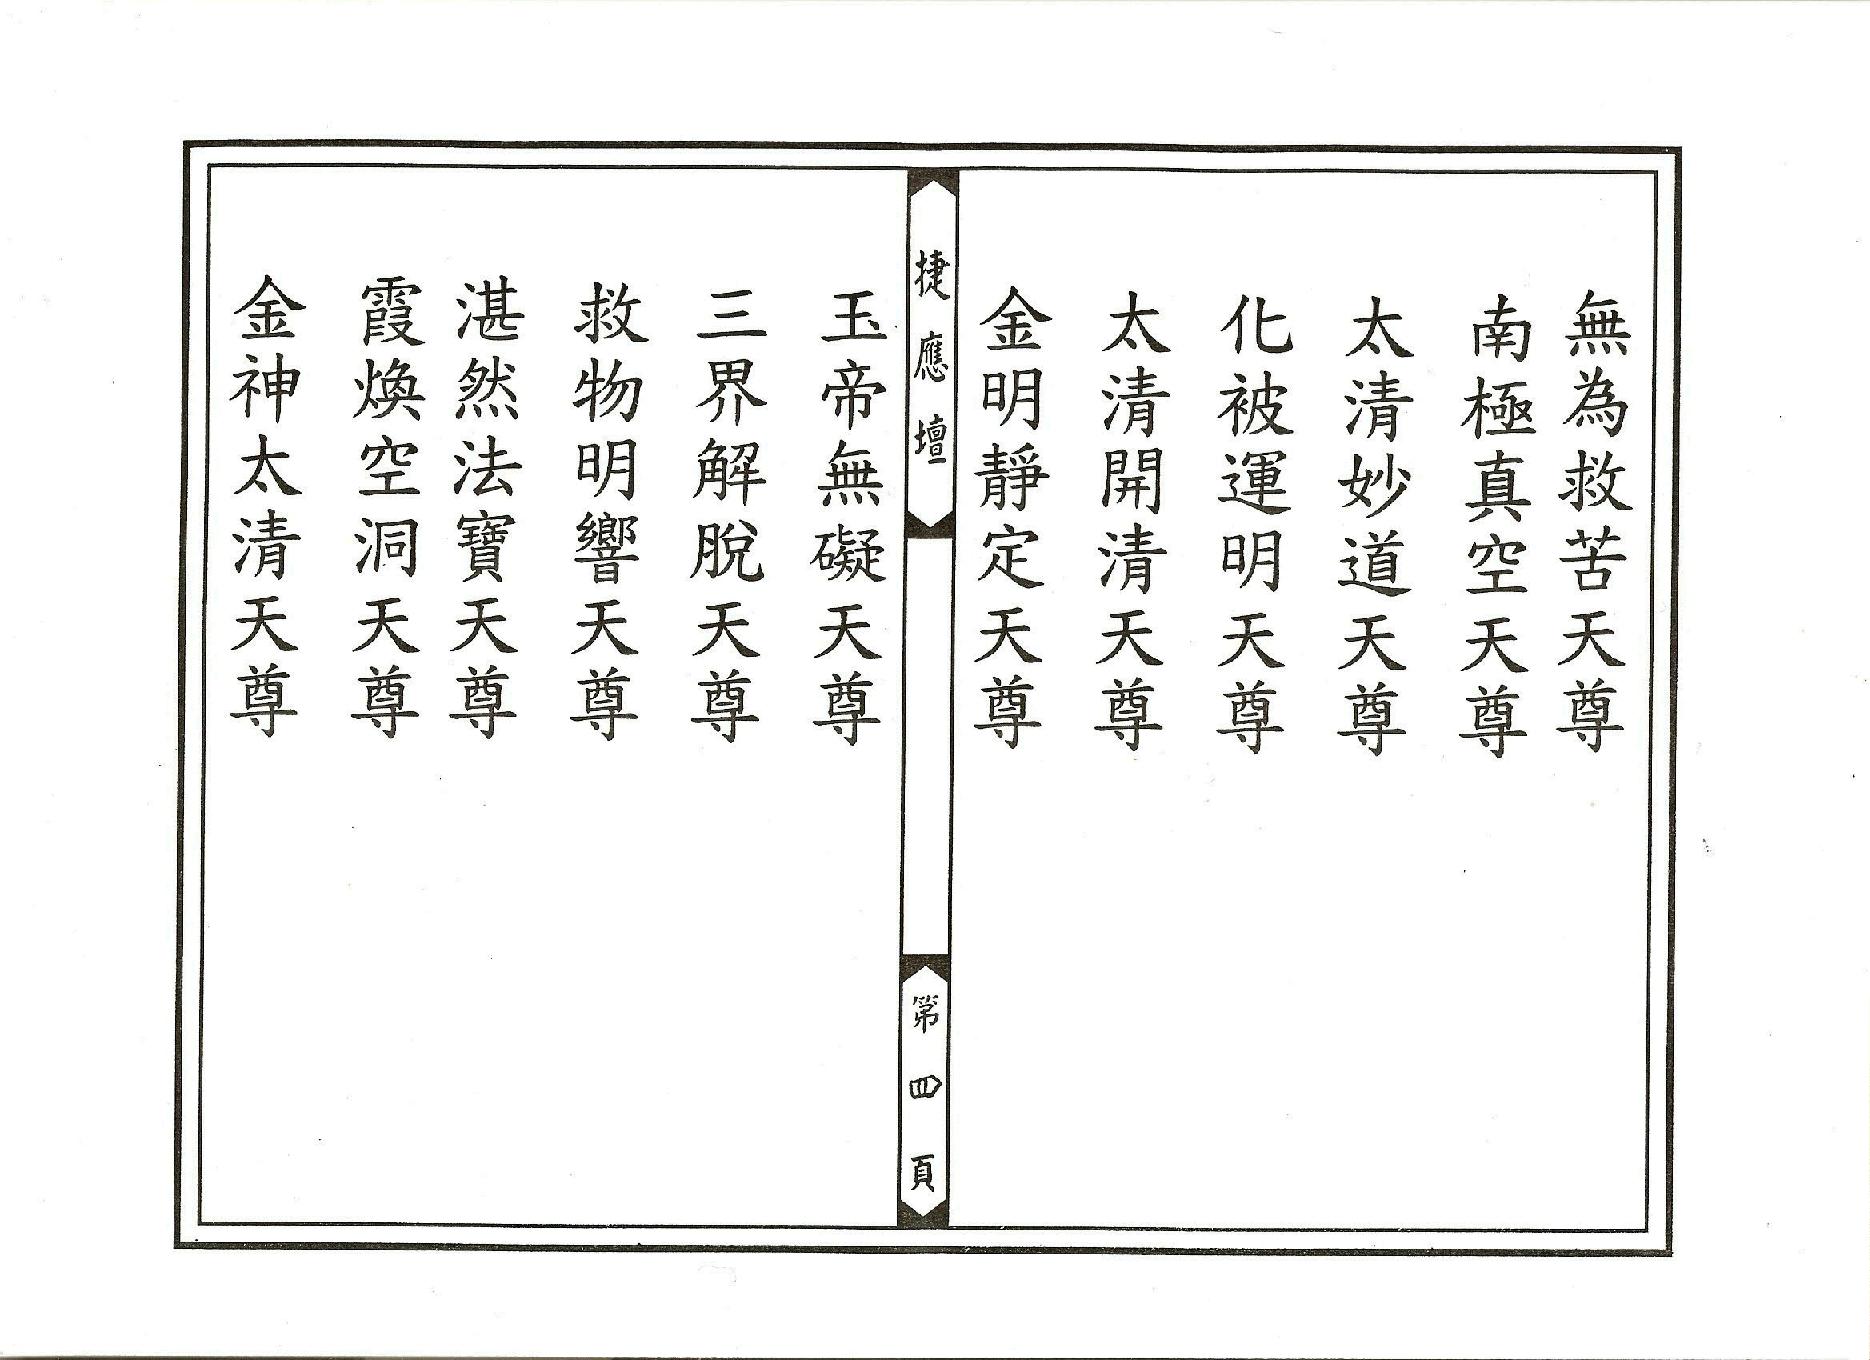 無為救苦天尊
南極真空天尊
太清妙道天尊
化被運明天尊
太清開清天尊
金明靜定天尊
捷應壇
第四頁
玉帝無礙天尊
三界解脫天尊
救物明響天尊
湛然法寶天尊
霞煥空洞天尊
金神太清天尊